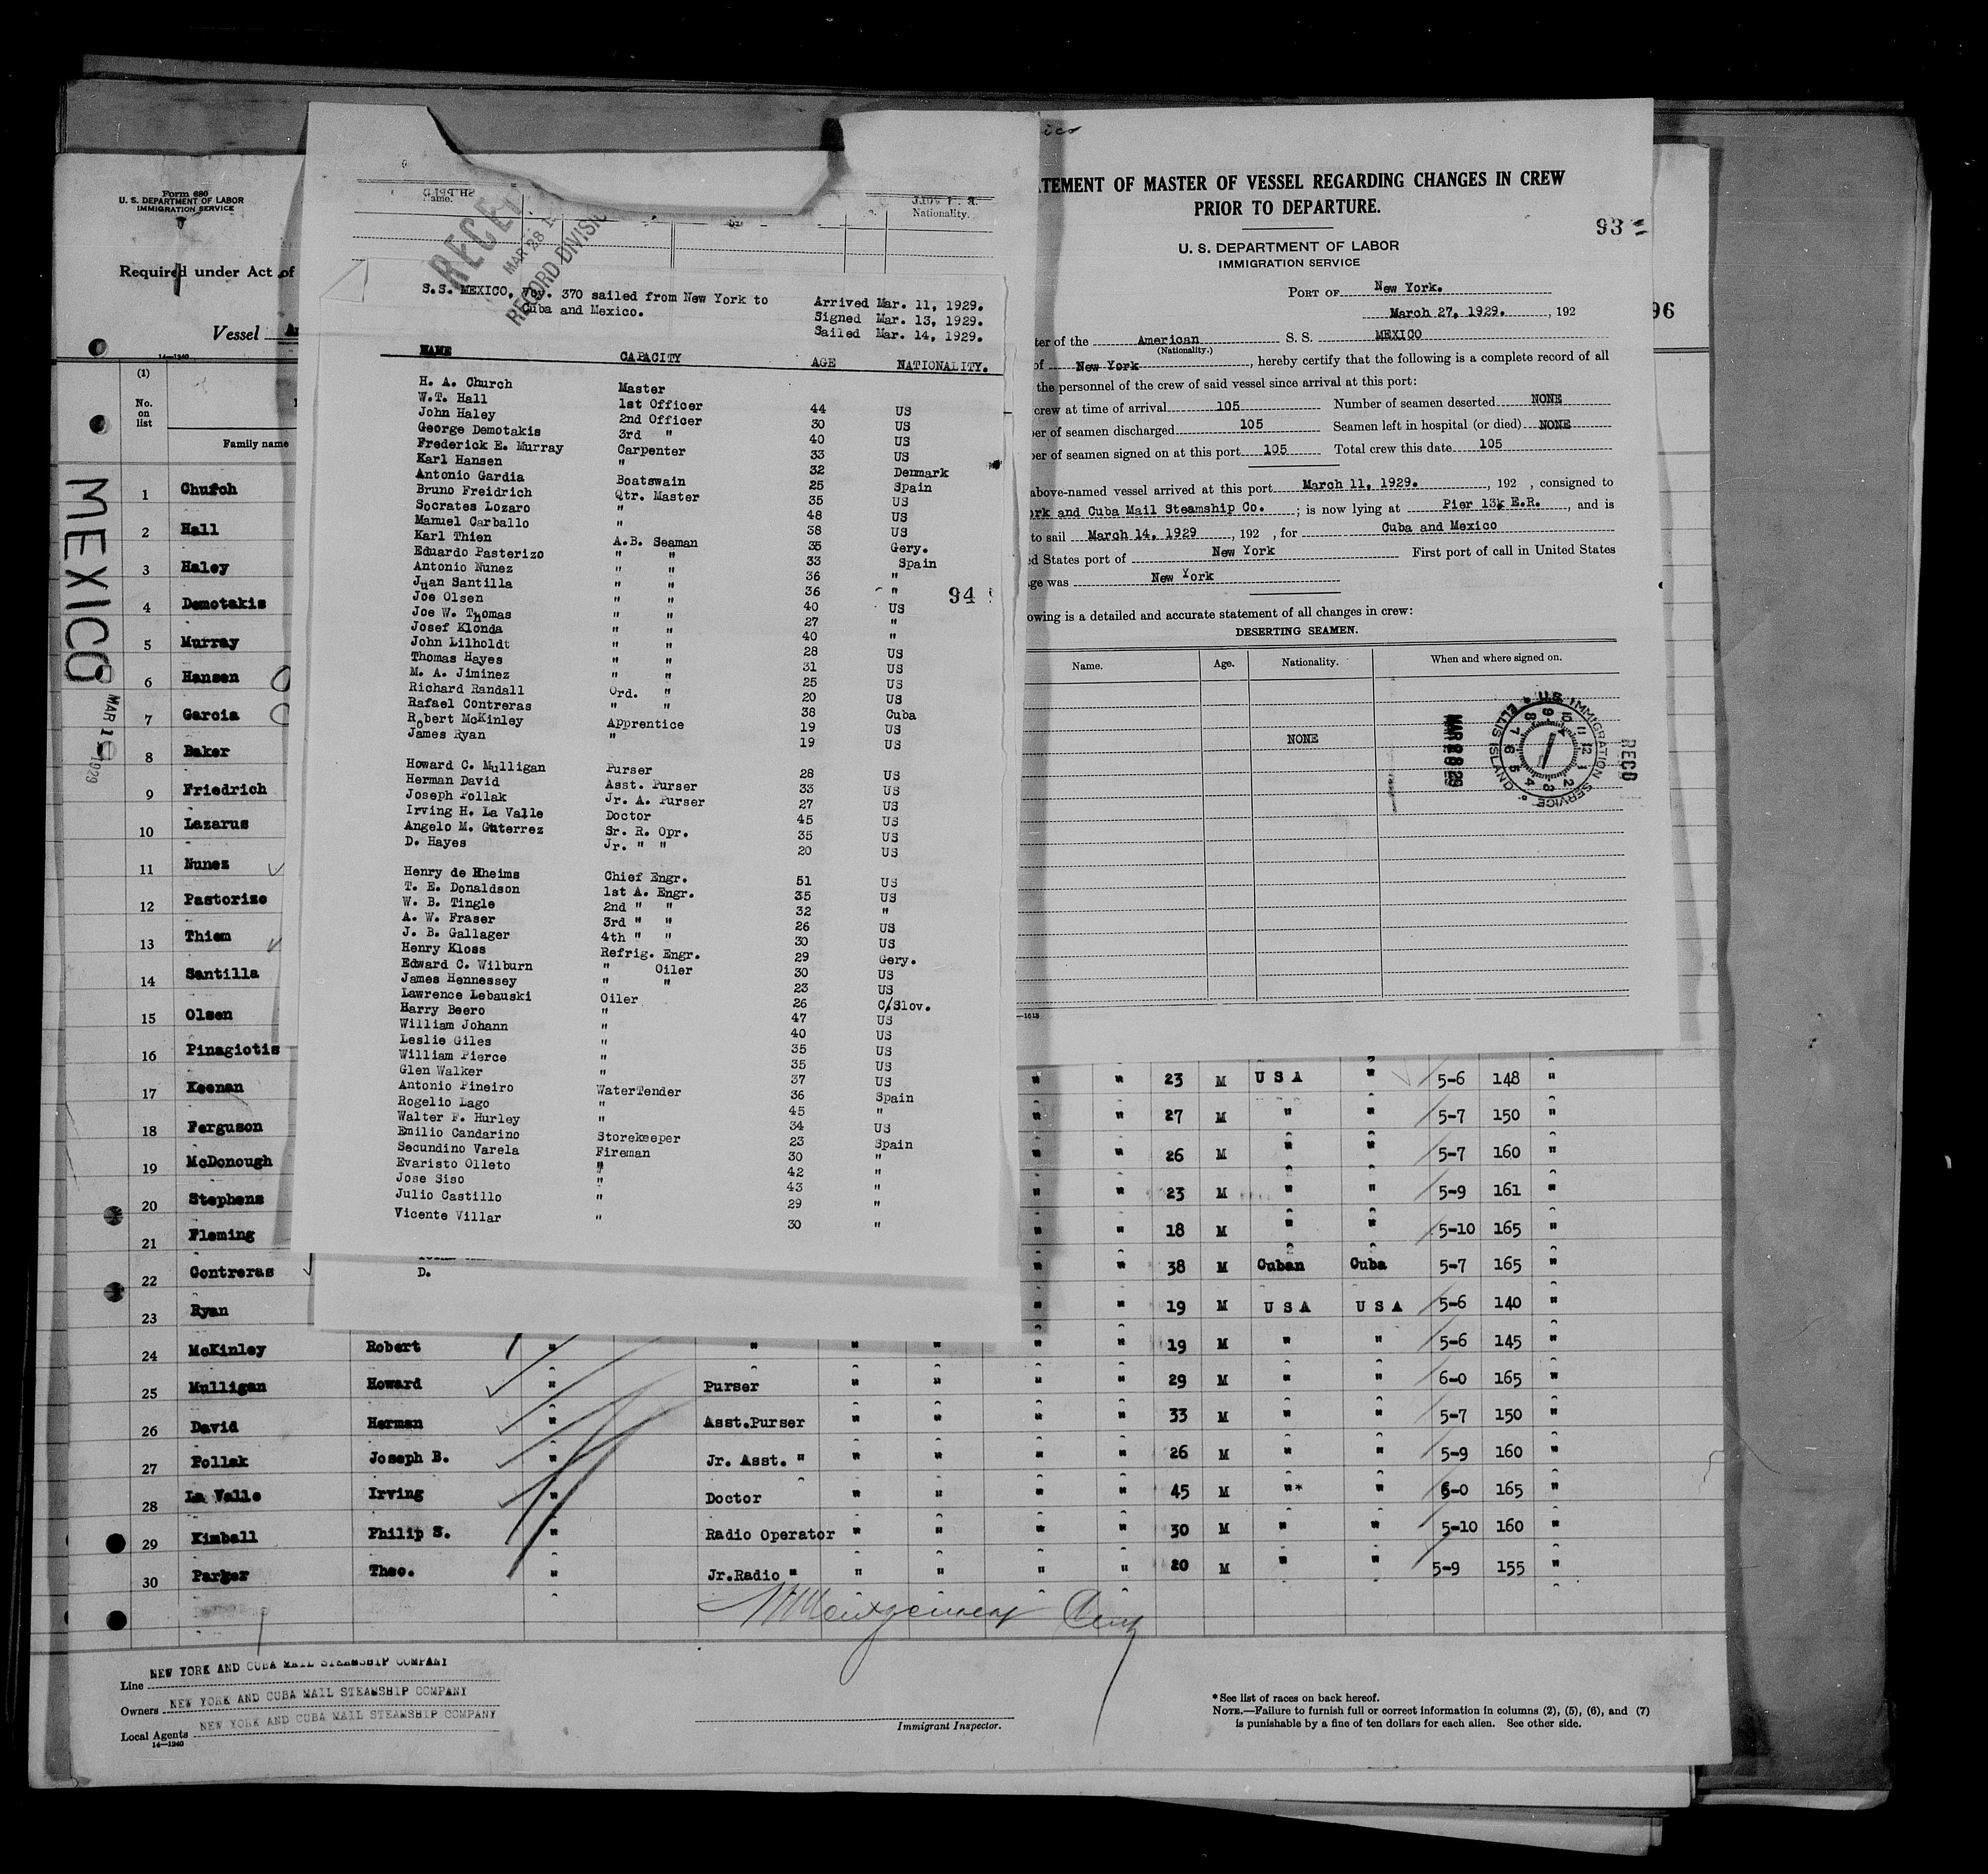 Form 680
U. S. DEPARTMENT OF LABOR
IMMIGRATION SERVICE
Required under Act of
Vessel
14—1240
(1)
No.
on
list
Family name
MEXICO
MAR 1 1929
96
1 Church
2 Hall
3 Haley
4 Demotakis
5 Murray
6 Hansen
7 Garcia
8 Baker
9 Friedrich
10 Lazarus
11 Nunez
12 Pastorizo
13 Thiem
14 Santilla
15 Olsen
16 Pinagiotis
17 Keenan " " 23 M U S A " 5-6 148 "
18 Ferguson " " 27 M " " 5-7 150 "
19 McDonough " " 26 M " " 5-7 160 "
20 Stephens " " 23 M " " 5-9 161 "
21 Fleming " " 18 M " " 5-10 165 "
22 Contreras D. " " 38 M Cuban Cuba 5-7 165 "
23 Ryan " " 19 M U S A U S A 5-6 140 "
24 McKinley Robert " " " " " " 19 M " " 5-6 145 "
25 Mulligan Howard " Purser " " " " 29 M " " 6-0 165 "
26 David Herman " Asst.Purser " " " " 33 M " " 5-7 150 "
27 Pollak Joseph B. " Jr. Asst. " " " " " 26 M " " 5-9 160 "
28 La Valle Irving " Doctor " " " " 45 M "* " 6-0 165 "
29 Kimball Philip S. " Radio Operator " " " " 30 M " " 5-10 160 "
30 Parker Theo. " Jr.Radio " " " " " 20 M " " 5-9 155 "
Line NEW YORK AND CUBA MAIL STEAMSHIP COMPANY
Owners NEW YORK AND CUBA MAIL STEAMSHIP COMPANY
Local Agents NEW YORK AND CUBA MAIL STEAMSHIP COMPANY
14—1240
Immigrant Inspector.
*See list of races on back hereof.
NOTE.—Failure to furnish full or correct information in columns (2), (5), (6), and (7)
is punishable by a fine of ten dollars for each alien. See other side.
Name.
Nationality.
MAR 28
RECORD DIVISION
S.S. MEXICO, Voy. 370 sailed from New York to
Cuba and Mexico.
Arrived Mar. 11, 1929.
Signed Mar. 13, 1929.
Sailed Mar. 14, 1929.
NAME CAPACITY AGE NATIONALITY.
H. A. Church Master
W.T. Hall 1st Officer 44 US
John Haley 2nd Officer 30 US
George Demotakis 3rd " 40 US
Frederick E. Murray Carpenter 33 US
Karl Hansen " 32 Denmark
Antonio Gardia Boatswain 25 Spain
Bruno Freidrich Qtr. Master 35 US
Socrates Lozaro " 48 US
Manuel Carballo " 38 US
Karl Thien A.B. Seaman 35 Gery.
Eduardo Pasterizo " " 33 Spain
Antonio Nunez " " 36 "
Juan Santilla " " 36 "
94
Joe Olsen " " 40 US
Joe W. Thomas " " 27 "
Josef Klonda " " 40 "
John Lilholdt " " 28 US
Thomas Hayes " " 31 US
M. A. Jiminez " " 25 US
Richard Randall Ord. " 20 US
Rafael Contreras " " 38 Cuba
Robert McKinley Apprentice 19 US
James Ryan " 19 US
Howard C. Mulligan Purser 28 US
Herman David Asst. Purser 33 US
Joseph Pollak Jr. A. Purser 27 US
Irving H. La Valle Doctor 45 US
Angelo M. Guterrez Sr. R. Opr. 35 US
D. Hayes Jr. " " 20 US
Henry de Rheims Chief Engr. 51 US
T. E. Donaldson 1st A. Engr. 35 US
W. B. Tingle 2nd " " 32 "
A. W. Fraser 3rd " " 26 US
J. B. Gallager 4th " " 30 US
Henry Kloss Refrig. Engr. 29 Gery.
Edward C. Wilburn " Oiler 30 US
James Hennessey " " 23 US
Lawrence Lebauski Oiler 26 C/Slov.
Harry Beero " 47 US
William Johann " 40 US
Leslie Giles " 35 US
William Pierce " 35 US
Glen Walker " 37 US
Antonio Pineiro WaterTender 36 Spain
Rogelio Lago " 45 "
Walter F. Hurley " 34 US
Emilio Candarino Storekeeper 23 Spain
Secundino Varela Fireman 30 "
Evaristo Olleto " 42 "
Jose Siso " 43 "
Julio Castillo " 29 "
Vicente Villar " 30 "
TEMENT OF MASTER OF VESSEL REGARDING CHANGES IN CREW
PRIOR TO DEPARTURE.
93
U. S. DEPARTMENT OF LABOR
IMMIGRATION SERVICE
PORT OF New York.
March 27, 1929. , 192
ter of the American S. S. MEXICO
(Nationality.)
of New York , hereby certify that the following is a complete record of all
the personnel of the crew of said vessel since arrival at this port:
crew at time of arrival 105 Number of seamen deserted NONE
er of seamen discharged 105 Seamen left in hospital (or died) NONE
er of seamen signed on at this port 105 Total crew this date 105
above-named vessel arrived at this port March 11, 1929. , 192 , consigned to
ork and Cuba Mail Steamship Co. ; is now lying at Pier 13 E.R. , and is
to sail March 14, 1929 , 192 , for Cuba and Mexico
ed States port of New York First port of call in United States
ge was New York
owing is a detailed and accurate statement of all changes in crew:
DESERTING SEAMEN.
Name. Age. Nationality. When and where signed on.
NONE
MAR 28 29
U.S. IMMIGRATION SERVICE ELLIS ISLAND
RECD